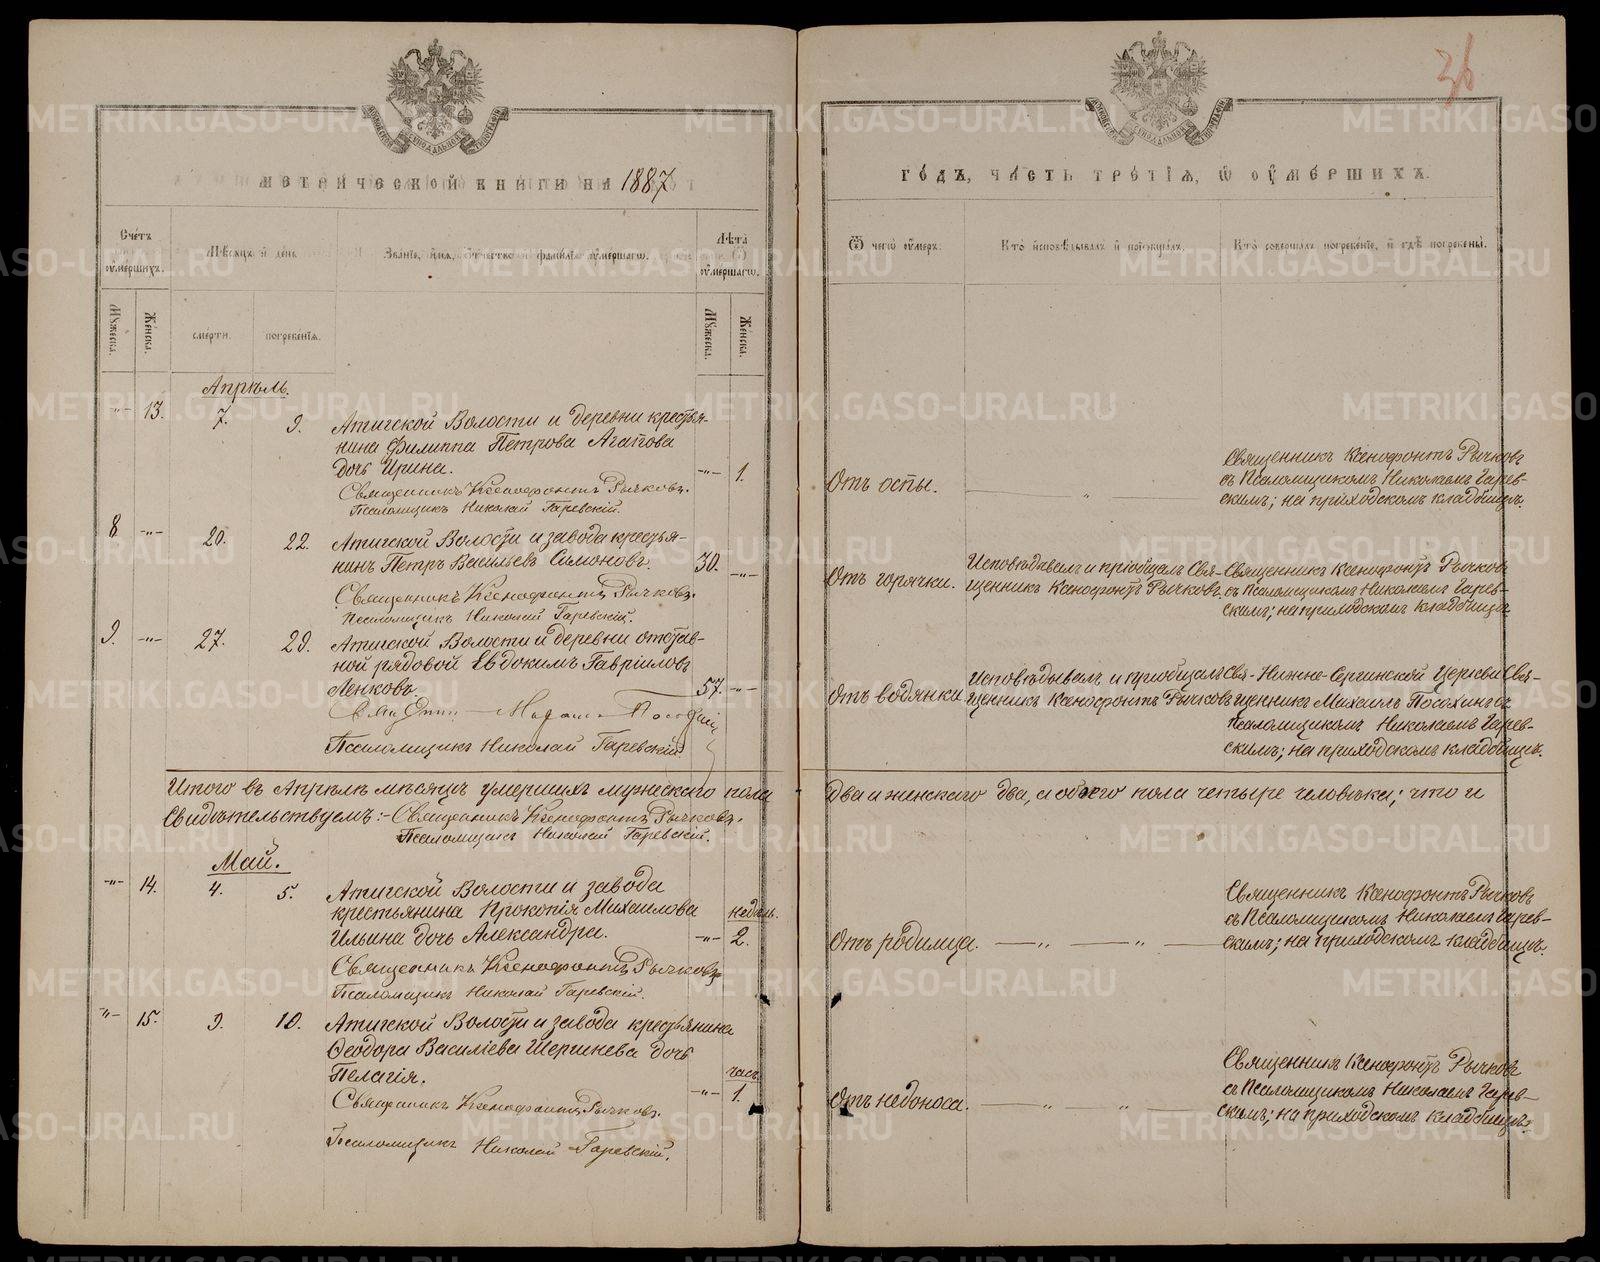 36
МЕТРИЧЕСКОЙ КНИГИ НА 1887
ГОДЪ, ЧАСТЬ ТРЕТІЯ, Ѡ ОУМЕРШИХЪ.
Счетъ оумершихъ.
Мѣсяцъ и день
Званіе, имя, отчество и фамилія оумершаго.
Лѣта оумершаго.
Ѿ чегω оумеръ.
Кто исповѣдывалъ и пріобщалъ.
Кто совершалъ погребеніе, и гдѣ погребены.
Мꙋжеска.
Женска.
смерти.
погребенія.
Мꙋжеска.
Женска.
Апрѣль.
-"- 13. 7. 9. Атигской Волости и деревни крестья-
нина Филиппа Петрова Агапова
дочь Ирина. -"- 1.
Священникъ Ксенофонтъ Рычковъ.
Псаломщикъ Николай Гаревскій.
Отъ оспы. "
Священникъ Ксенофонтъ Рычковъ
съ Псаломщикомъ Николаемъ Гарев-
скимъ; на приходскомъ кладбищѣ.
8 -"- 20. 22. Атигской Волости и завода крестья-
нинъ Петръ Васильевъ Симоновъ. 30. -"-
Священникъ Ксенофонтъ Рычковъ.
Псаломщикъ Николай Гаревскій.
Отъ горячки.
Исповѣдывалъ и пріобщалъ Свя-
щенникъ Ксенофонтъ Рычковъ.
Священникъ Ксенофонтъ Рычковъ
съ Псаломщикомъ Николаемъ Гарев-
скимъ; на приходскомъ кладбищѣ
9. -"- 27. 29. Атигской Волости и деревни отстав-
ной рядовой Евдокимъ Гавріиловъ
Ленковъ. 57. -"-
Псаломщикъ Николай Гаревскій.
Отъ водянки
Исповѣдывалъ и пріобщалъ Свя-
щенникъ Ксенофонтъ Рычковъ
Нижне-Сергинской Церкви Свя-
щенникъ Михаилъ Посохинъ съ
Псаломщикомъ Николаемъ Гарев-
скимъ; на приходскомъ кладбищѣ.
Итого въ Апрѣлѣ мѣсяцѣ умершихъ мужескаго пола
два и женскаго два, а обоего пола четыре человѣка; что и
Свидѣтельствуемъ:- Священникъ Ксенофонтъ Рычковъ.
Псаломщикъ Николай Гаревскій.
Май.
-"- 14. 4. 5. Атигской Волости и завода
крестьянина Прокопія Михаилова недѣль.
Ильина дочь Александра. -"- 2.
Священникъ Ксенофонтъ Рычковъ
Псаломщикъ Николай Гаревскій.
Отъ родимца. " "
Священникъ Ксенофонтъ Рычковъ
съ Псаломщикомъ Николаемъ Гарев-
скимъ; на приходскомъ кладбищѣ.
-"- 15. 9. 10. Атигской Волости и завода крестьянина
Ѳеодора Василіева Шергинева дочь
Пелагія. часъ
-"- 1.
Священникъ Ксенофонтъ Рычковъ.
Псаломщикъ Николай Гаревскій.
Отъ недоноса. " "
Священникъ Ксенофонтъ Рычковъ
съ Псаломщикомъ Николаемъ Гарев-
скимъ; на приходскомъ кладбищѣ.
METRIKI.GASO-URAL.RU